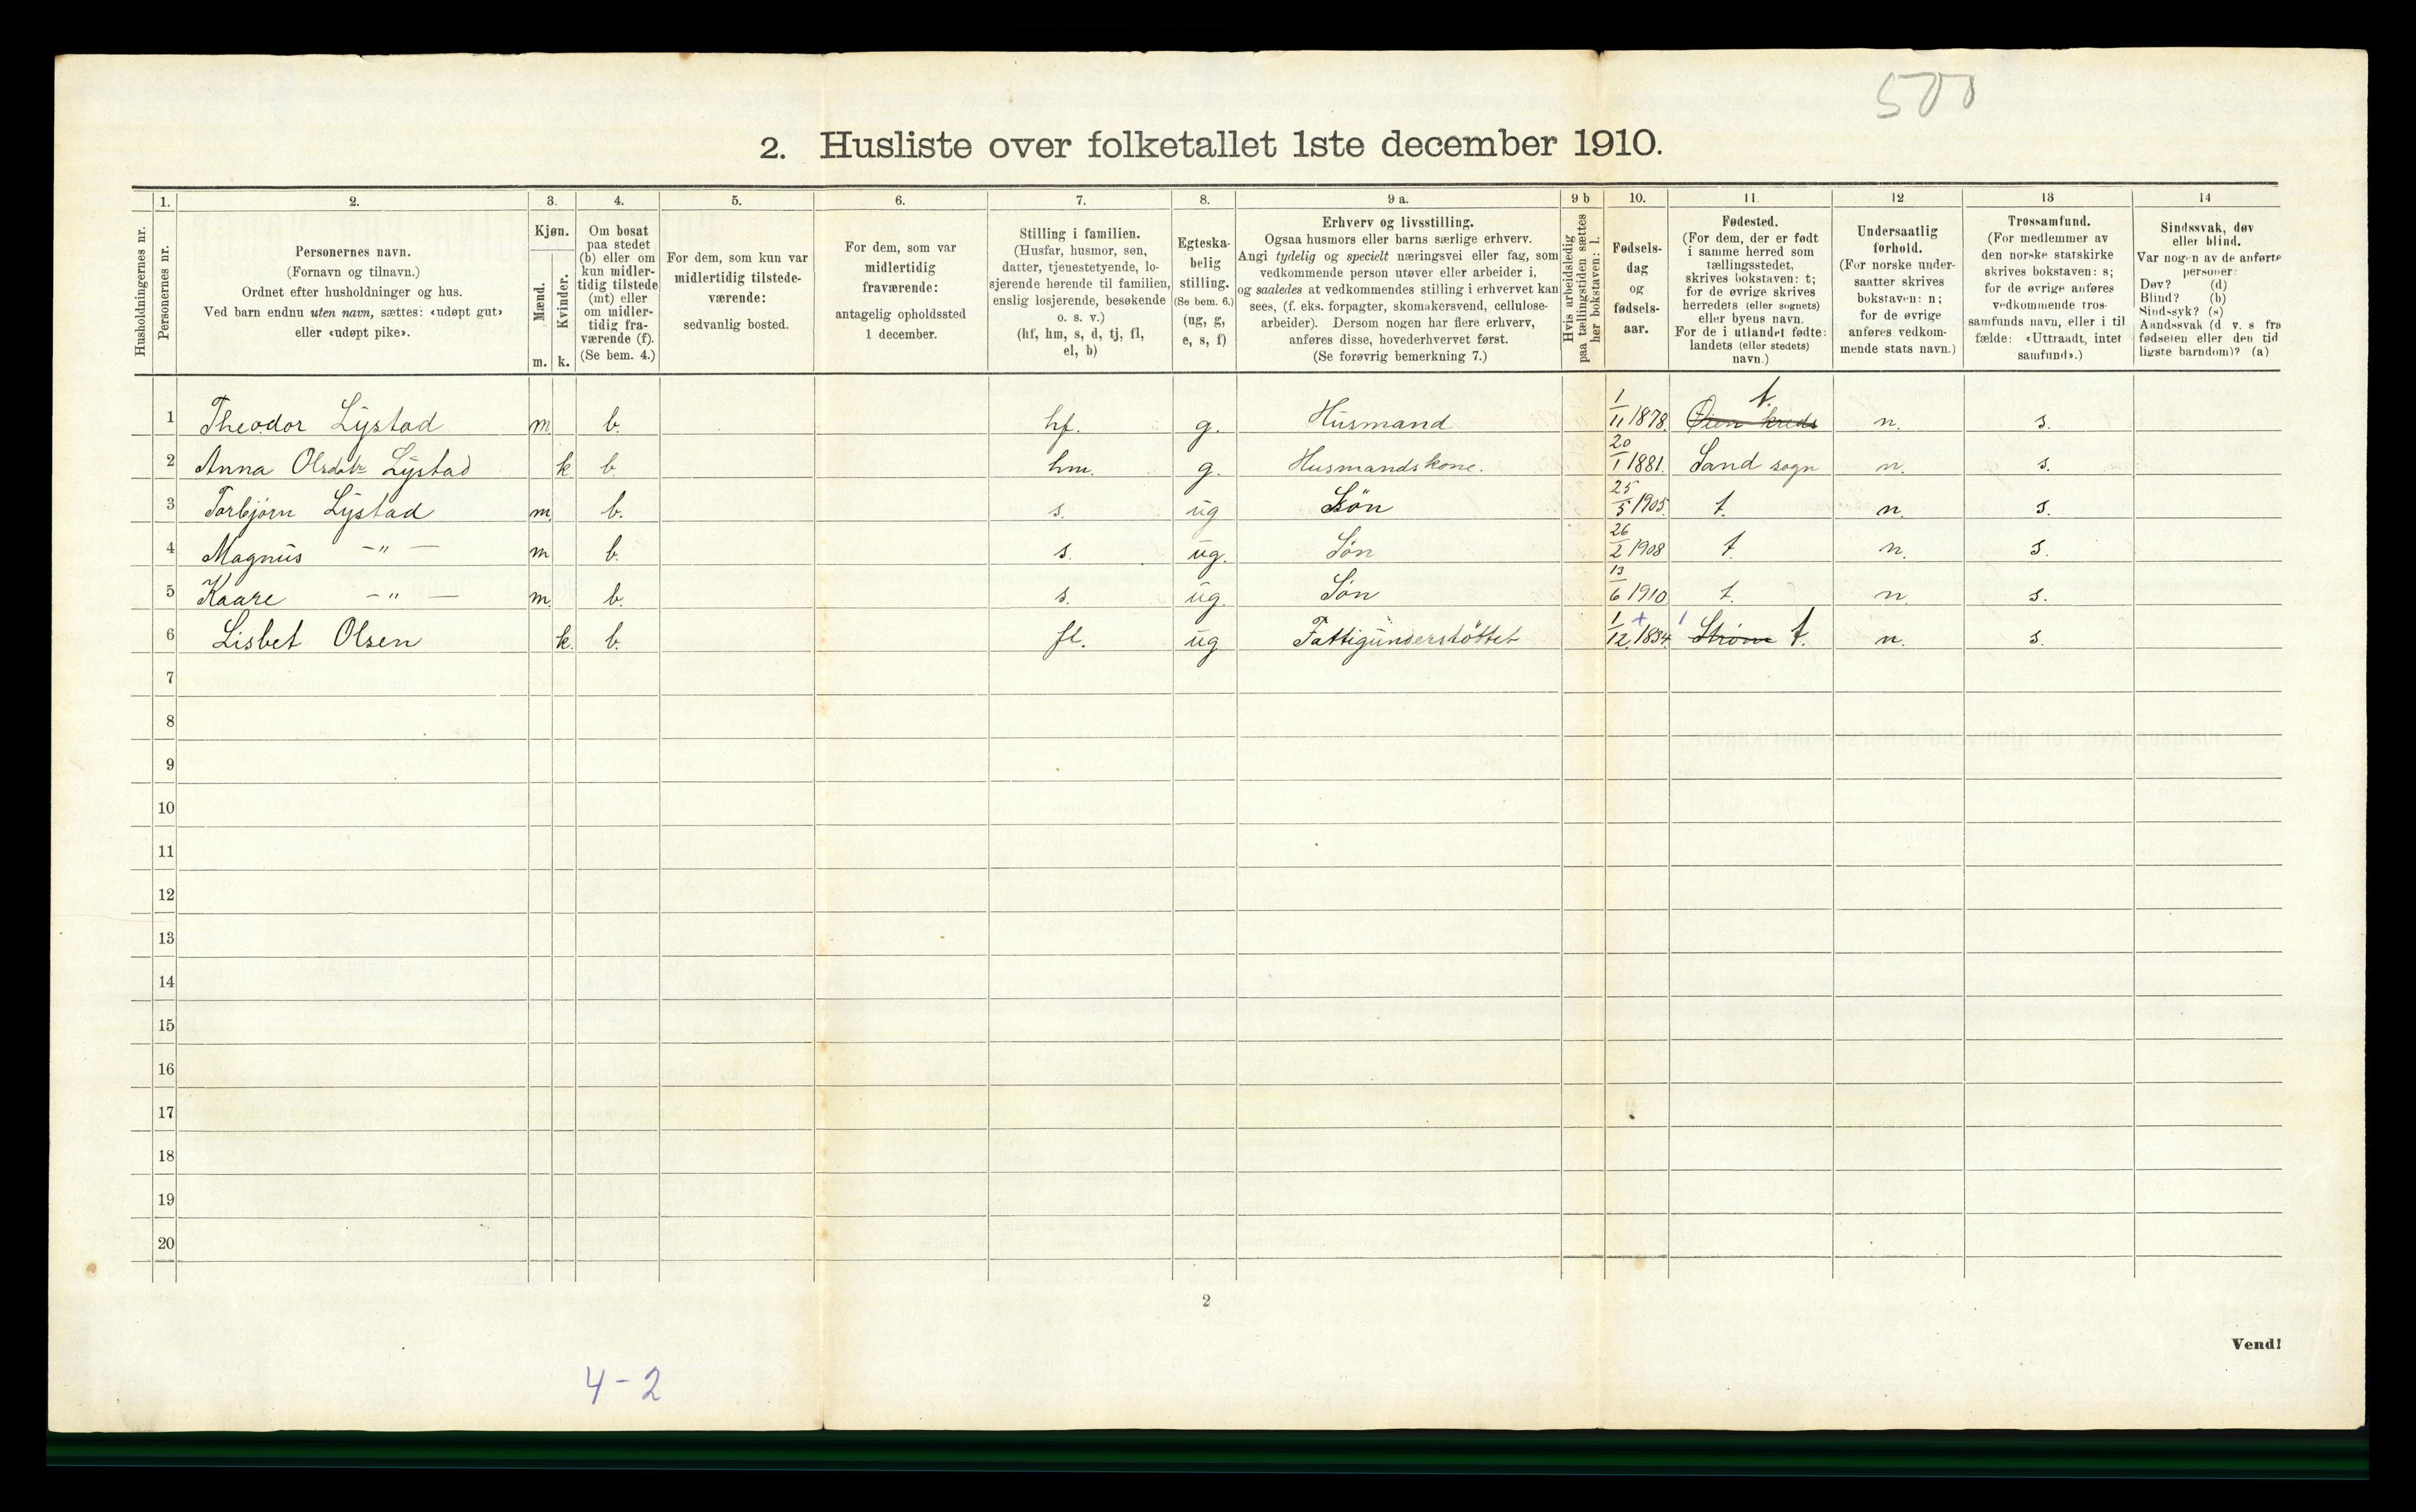 500
2. Husliste over folketallet 1ste december 1910.
Husholdningernes nr.
1. Personernes nr.
2.
Personernes navn.
(Fornavn og tilnavn.)
Ordnet efter husholdninger og hus.
Ved barn endnu uten navn, sættes: «udøpt gut»
eller «udøpt pike».
3.
Kjøn.
Mænd. m.
Kvinder. k.
4.
Om bosat
paa stedet
(b) eller om
kun midler-
tidig tilstede
(mt) eller
om midler-
tidig fra-
værende (f).
(Se bem. 4.)
5.
For dem, som kun var
midlertidig tilstede-
værende:
sedvanlig bosted.
6.
For dem, som var
midlertidig
fraværende:
antagelig opholdssted
1 december.
7.
Stilling i familien.
(Husfar, husmor, søn,
datter, tjenestetyende, lo-
sjerende hørende til familien,
enslig losjerende, besøkende
o. s. v.)
(hf, hm, s, d, tj, fl,
el, b)
8.
Egteska-
belig
stilling.
(Se bem. 6.)
(ug, g,
e, s, f)
9 a.
Erhverv og livsstilling.
Ogsaa husmors eller barns særlige erhverv.
Angi tydelig og specielt næringsvei eller fag, som
vedkommende person utøver eller arbeider i,
og saaledes at vedkommendes stilling i erhvervet kan
sees, (f. eks. forpagter, skomakersvend, cellulose-
arbeider). Dersom nogen har flere erhverv,
anføres disse, hovederhvervet først.
(Se forøvrig bemerkning 7.)
9 b
Hvis arbeidsledig
paa tællingstiden sættes
her bokstaven: l.
10.
Fødsels-
dag
og
fødsels-
aar.
11.
Fødested.
(For dem, der er født
i samme herred som
tællingsstedet,
skrives bokstaven: t;
for de øvrige skrives
herredets (eller sognets)
eller byens navn.
For de i utlandet fødte:
landets (eller stedets)
navn.)
12
Undersaatlig
forhold.
(For norske under-
saatter skrives
bokstaven: n;
for de øvrige
anføres vedkom-
mende stats navn.)
13
Trossamfund.
(For medlemmer av
den norske statskirke
skrives bokstaven: s;
for de øvrige anføres
vedkommende tros-
samfunds navn, eller i til
fælde: «Uttraadt, intet
samfund».)
14
Sindssvak, døv
eller blind.
Var nogen av de anførte
personer:
Døv? (d)
Blind? (b)
Sindssyk? (s)
Aandssvak (d. v. s fra
fødselen eller den tid
ligste barndom)? (a)
1 Theodor Lystad m b. hf. g. Husmand 1/11 1878. Øien kreds t. n. s.
2 Anna Olsdatr Lystad k b. hm. g. Husmandskone. 20/1 1881. Sand sogn n. s.
3 Torbjørn Lystad m. b. s. ug Søn 25/5 1905. t. n. s.
4 Magnus -"- m b. s. ug. Søn 26/2 1908 t. n. s.
5 Kaare -"- m. b. s. ug. Søn 13/6 1910 t. n. s.
6 Lisbet Olsen k. b. fl. ug Fattigunderstöttet 1/12. 1834. + Strøm t. n. s.
7
8
9
10
11
12
13
14
15
16
17
18
19
20
2
Vend!
4-2